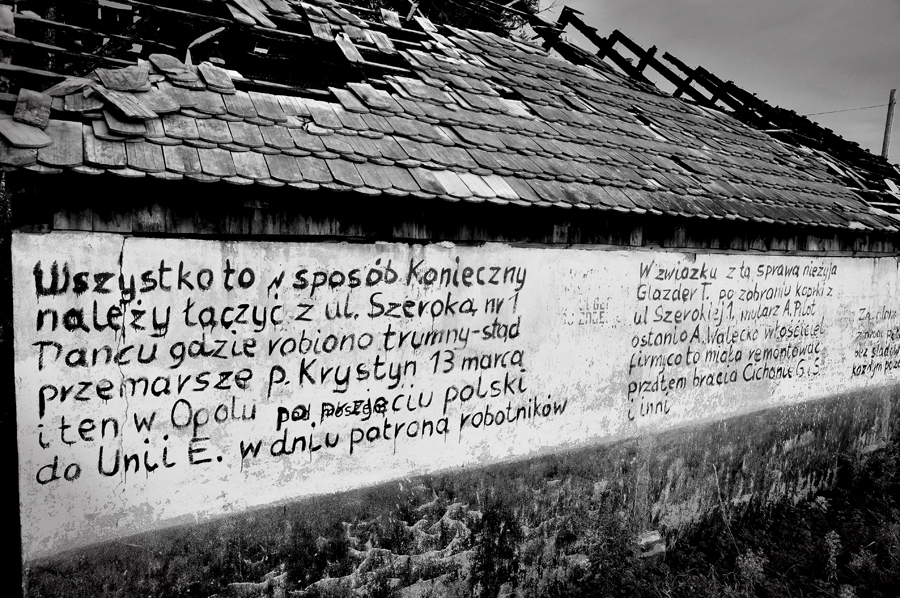 Wszystko to w sposób Konieczny
należy łączyć z ul. Szeroką nr 1
Pancu gdzie robiono trumny-stąd
przemarsze p. Krystyn 13 marca
i ten w Opolu po zdjęciu polski
do Unii E. w dniu patrona robotników
W związku z tą sprawą nieżyja
Glazder T. po zabraniu kopdrki z
ul Szerokiej 1, mularz A. Pilot
ostanio A. Walecko włościciel
firmy co to miała remontować
przdtem bracia Cichonie G. i S.
i inni